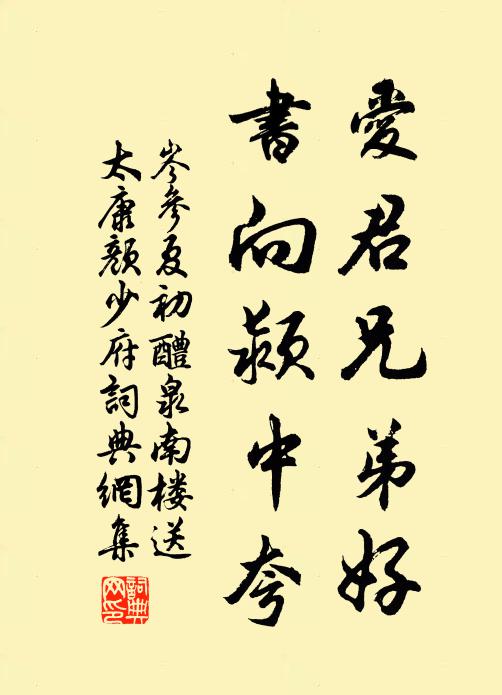 愛君兄弟好
書向潁中夸
岑參夏初醴泉南楼送
太康顏少府詞典網集
詞典网印